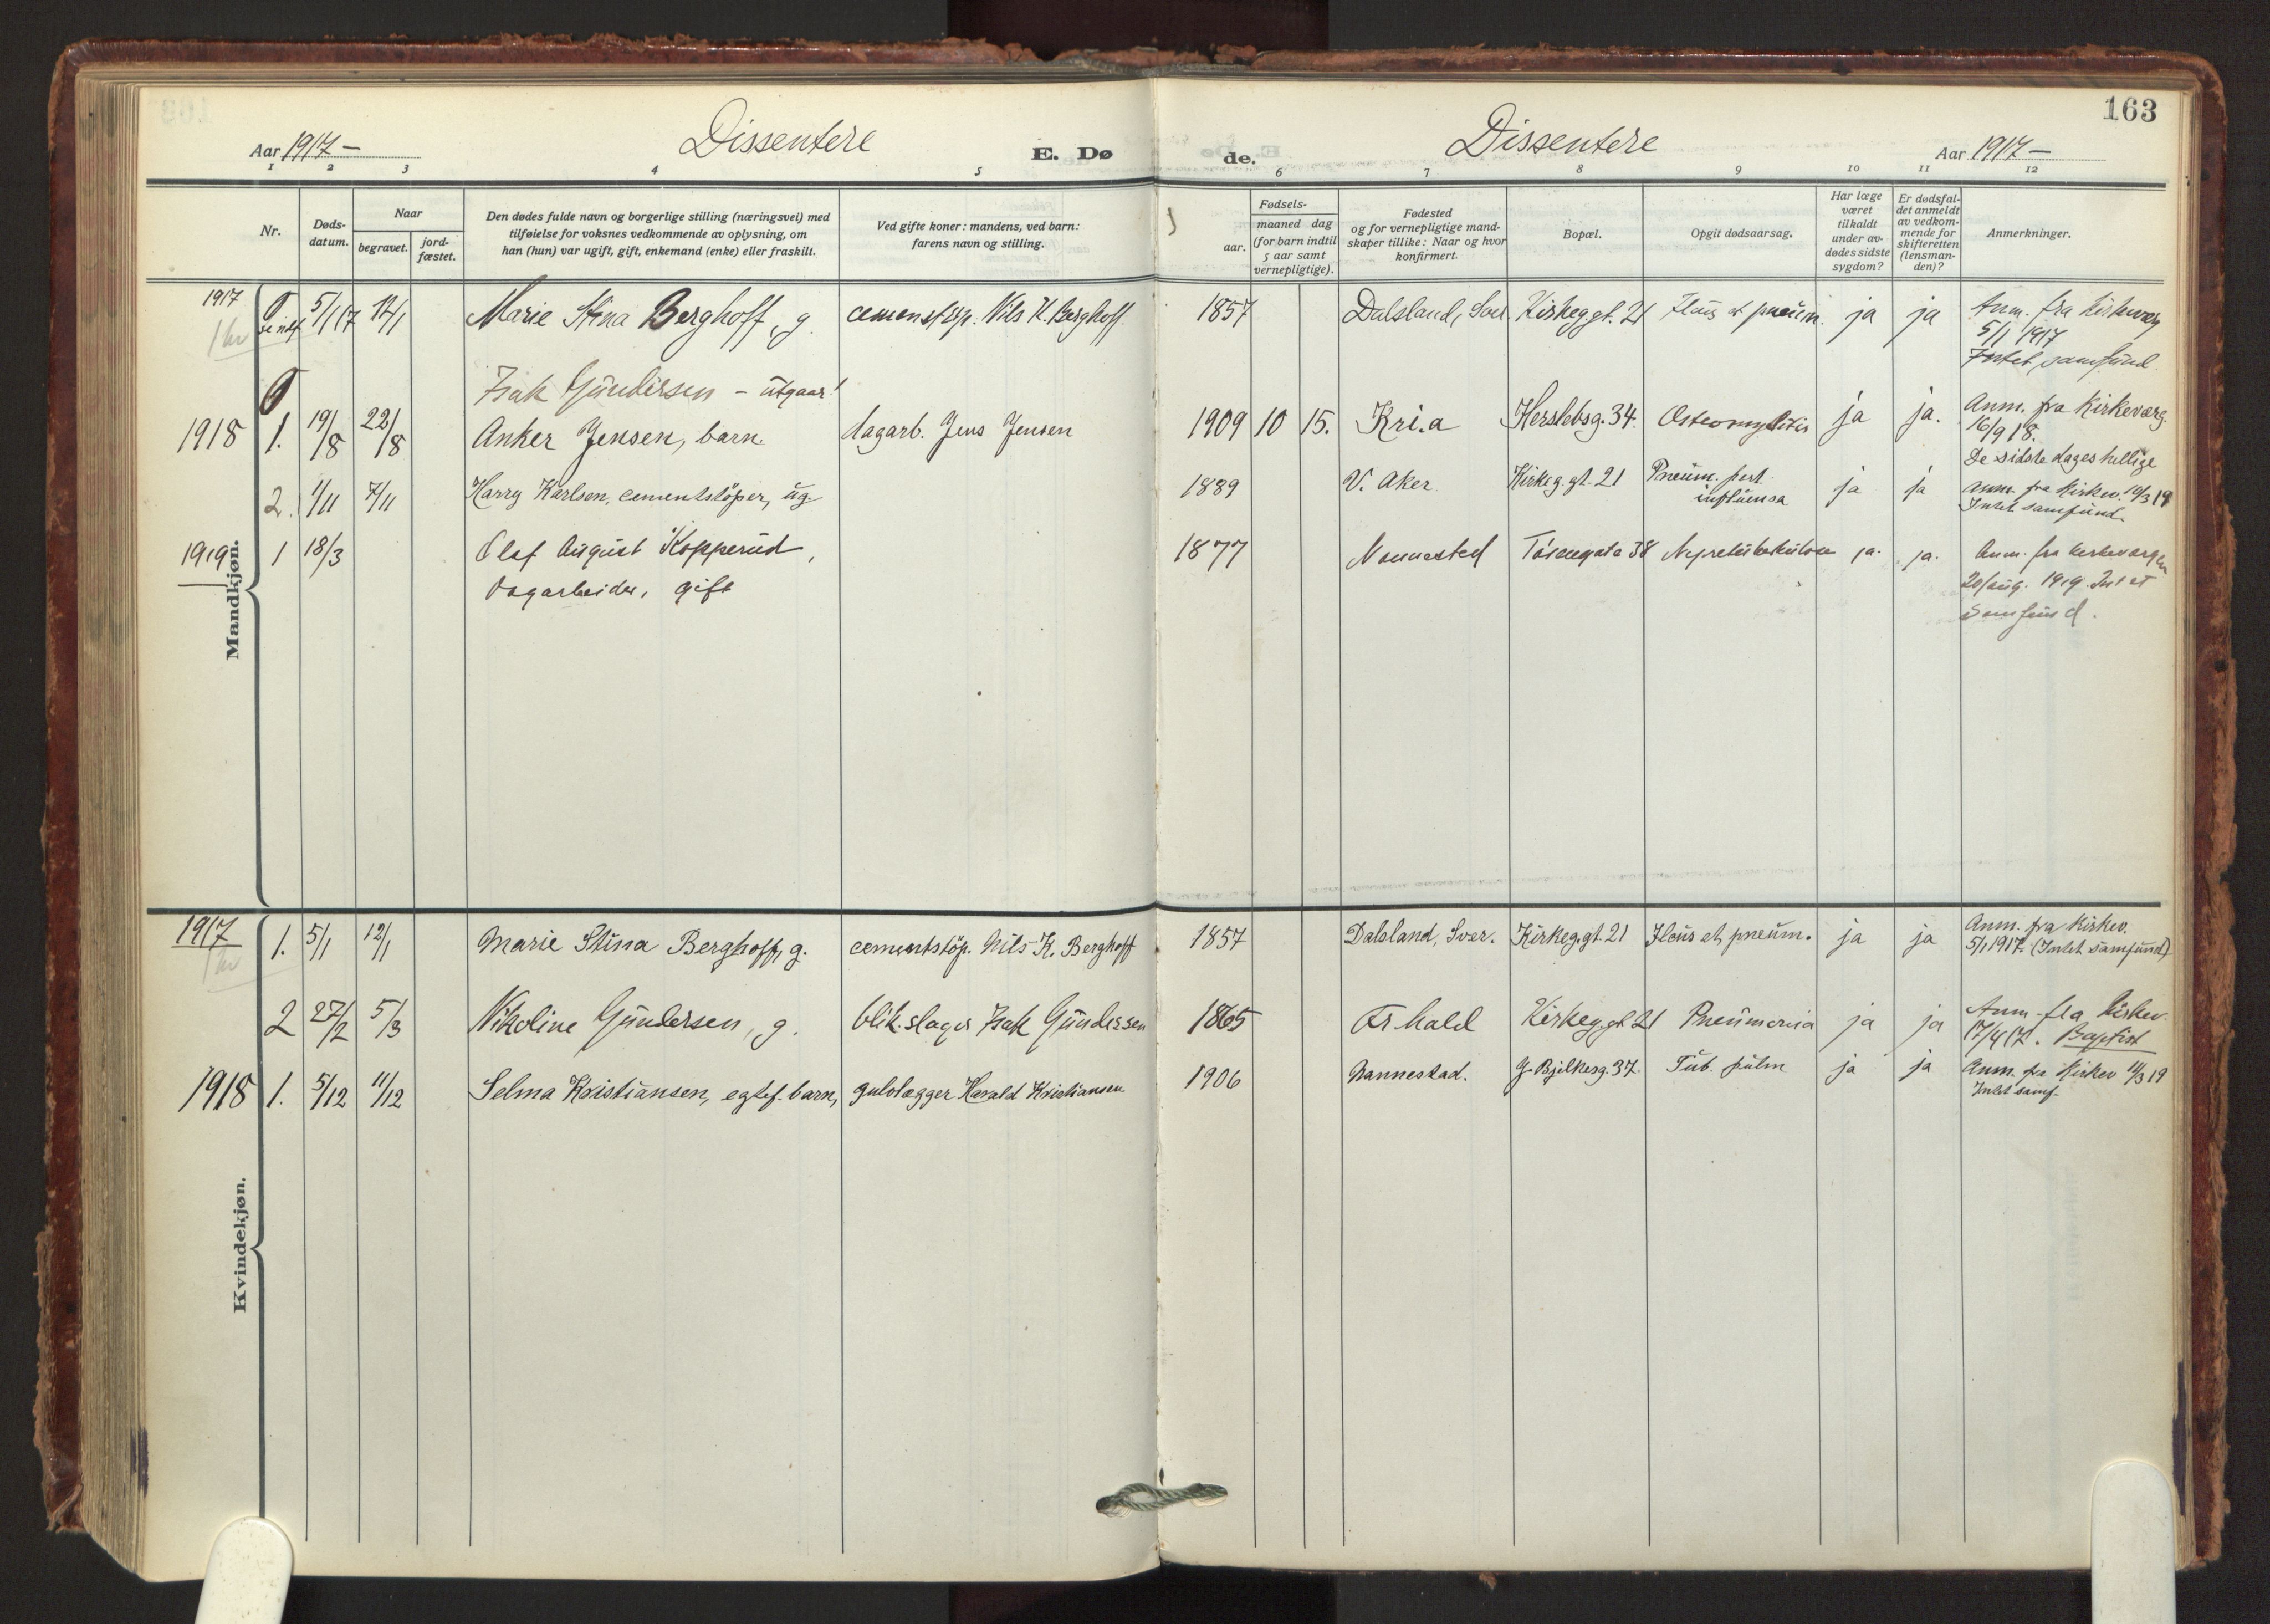 163
Aar 1917 – Dissentere E. Dø
de. Dissentere Aar 1917 –
1 2 3 4 5 6 7 8 9 10 11 12
Nr.
Døds-
datum.
Naar
begravet.
jord-
fæstet.
Den dødes fulde navn og borgerlige stilling (næringsvei) med
tilføielse for voksnes vedkommende av oplysning, om
han (hun) var ugift, gift, enkemand (enke) eller fraskilt.
Ved gifte koner: mandens, ved barn:
farens navn og stilling.
Fødsels-
aar.
maaned dag
(for barn indtil
5 aar samt
vernepligtige).
Fødested
og for vernepligtige mand-
skaper tillike: Naar og hvor
konfirmert.
Bopæl.
Opgit dødsaarsag.
Har læge
været
tilkaldt
under av-
dødes sidste
sygdom?
Er dødsfal-
det anmeldt
av vedkom-
mende for
skifteretten
(lensman-
den)?
Anmerkninger.
Mandkjøn.
1917 5/1 17 12/1 Marie Stina Berghoff, g. cementstøp. Nils K. Berghoff 1857 Dalsland, Sver. Kirkeg.gt. 21 Ileus et pneum. ja ja Anm. fra Kirkeverg
5/1 1917
Intet samfund.
Isak Gundersen – utgaar!
1918 1. 19/8 22/8 Anker Jensen, barn. dagarb. Jens Jensen 1909 10 15. Kri.a Herslebsg. 34. Osteomyelitis ja ja. Anm. fra Kirkeverg.
16/9 18.
De sidste dages hellige
2. 1/11 7/11 Harry Karlsen, cementstöper, ug 1889 V. Aker Kirkeg.gt. 21 Pneum. post
influensa ja ja Anm. fra Kirkev. 10/3 19
Intet samfund.
1919 1 18/3 Olaf August Kopperud,
Dagarbeider, gift 1877 Nannestad Tøiengata 38 ja. ja. Anm. fra kirkevergen
20/aug. 1919. Intet
samfund.
Kvindekjøn.
1917 1. 5/1 12/1 Marie Stina Berghoff, g. cementstöp. Nils K. Berghoff 1857 Dalsland, Sver. Kirkeg.gt. 21 Ileus et pneum. ja ja Anm. fra Kirkev.
5/1 1917. (Intet samfund)
2 27/2 5/3 Nikoline Gundersen, g. blik.slager Isak Gundersen 1865 Fr.hald Kirkeg.gt 21 Pneumonia ja ja Anm. fra Kirkev.
17/4 17. Baptist
1918 1. 5/12 11/12 Selma Kristiansen, egtef. barn, gulvlægger Harald Kristiansen 1906 Nannestad. G. Bjelkesg. 37. Tub. pulm ja ja Anm. fra Kirkev 10/3 19
Intet samf.